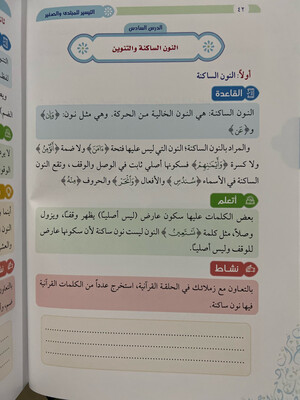 ٤٢
التيسير المبتدئ والصغير
الدرس السادس
النون الساكنة والتنوين
أولاً: النون الساكنة
القاعدة
النون الساكنة: هي النون الخالية من الحركة. وهي مثل نون: ﴿وَإِن﴾
و﴿عَن﴾
والمراد بالنون الساكنة؛ النون التي ليس عليها فتحة ﴿ءَامَنَ﴾ ولا ضمة
ولا كسرة فسكونها أصلي ثابت في الوصل والوقف، وتقع النون
الساكنة في الأسماء ﴿سُندُسٍ﴾ والأفعال ﴿وَٱنْحَرْ﴾ والحروف ﴿مِنْهُ﴾
أتعلم
بعض الكلمات عليها سكون عارض (ليس أصلياً) يظهر وقفاً، ويزول
وصلاً، مثل كلمة النون ليست نون ساكنة لأن سكونها عارض
للوقف وليس أصلياً.
نشاط
بالتعاون مع زملائك في الحلقة القرآنية، استخرج عدداً من الكلمات القرآنية
فيها نون ساكنة.